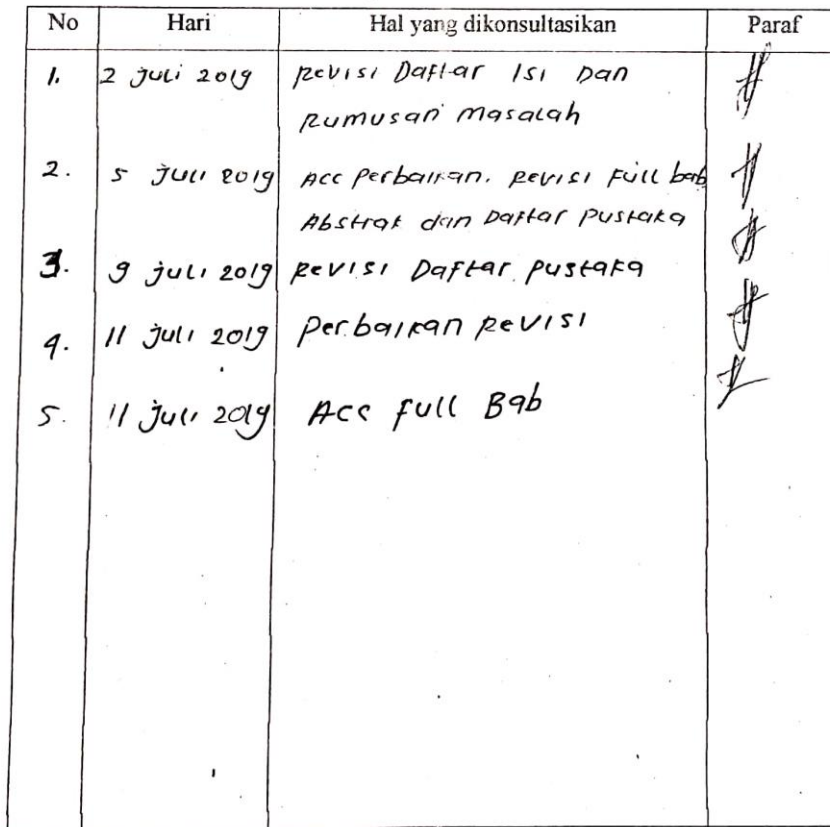 No Hari Hal yang dikonsultasikan Paraf
1. 2 Juli 2019 Revisi Daftar Isi Dan
Rumusan Masalah
2. 5 Juli 2019 Acc Perbaikan. Revisi Full bab
Abstrak dan Daftar Pustaka
3. 9 Juli 2019 Revisi Daftar Pustaka
4. 11 Juli 2019 Perbaikan Revisi
5. 11 Juli 2019 Acc Full Bab